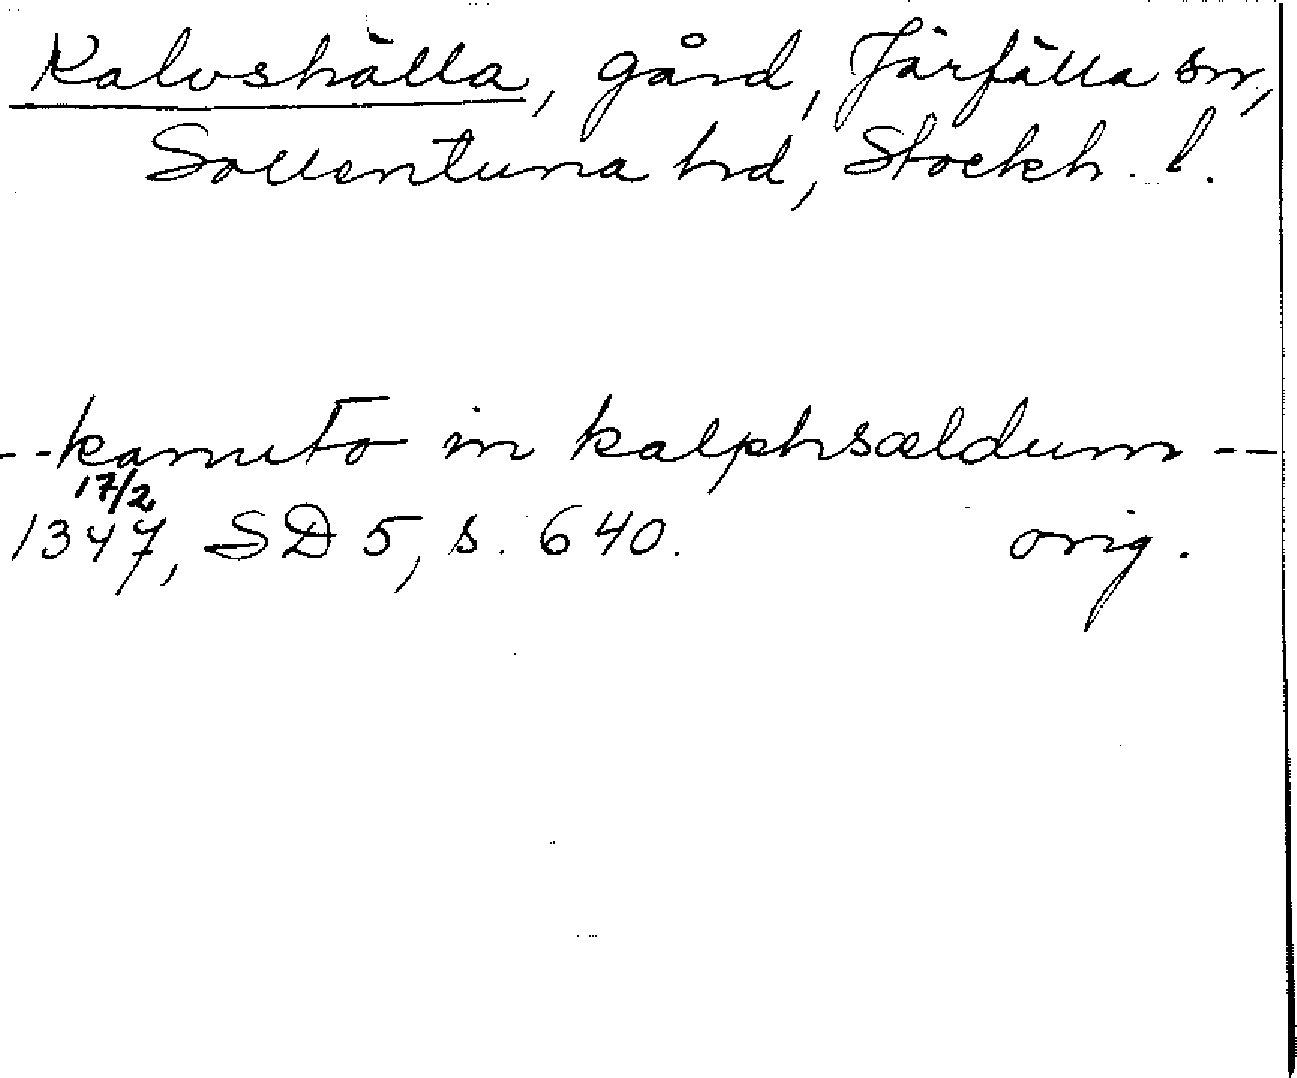 Kalvshälla, gård, Järfälla sn,
Sollentuna hd, Stockh. l.
-- kanuto in kalphsældum --
17/2
1347, SD 5, s. 640. orig.